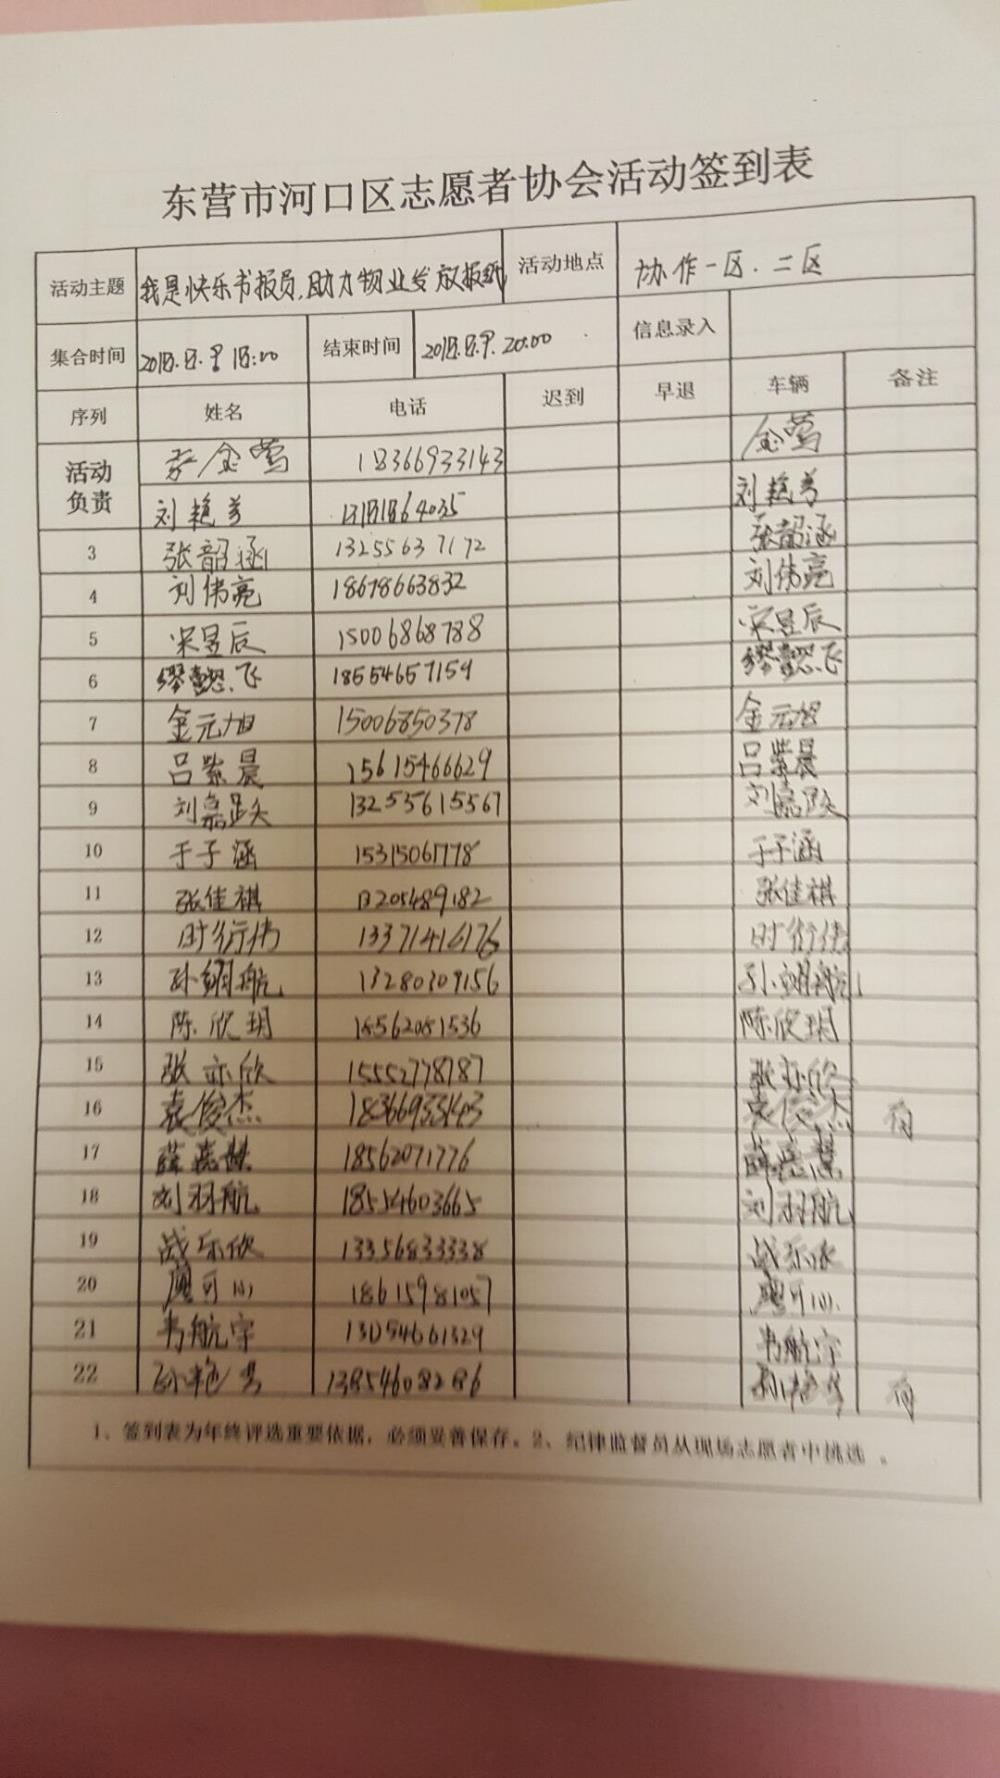 东营市河口区志愿者协会活动签到表
活动主题 我是快乐书报员,助力物业发放报纸 活动地点 协作一区.二区
集合时间 结束时间 20:00 信息录入
序列 姓名 电话 迟到 早退 车辆 备注
活动负责 金莺 18366933143 金莺
刘艳芳 刘艳芳
3 张韶涵 13255637172 张韶涵
4 刘伟亮 18678663832 刘伟亮
5 宋昱辰 15006868788 宋昱辰
6 缪懿飞 18554657159 缪懿飞
7 金元旭 15006850378 金元旭
8 吕紫晨 15615466629 吕紫晨
9 刘嘉跃 13255615567 刘嘉跃
10 于子涵 15315061778 于子涵
11 张佳祺 13205489182 张佳祺
12 时衍伟 13371416176 时衍伟
13 孙翊航 13280309156 孙翊航
14 陈欣玥 18562081536 陈欣玥
15 张亦欣 15552778787 张亦欣
16 袁俊杰 18366933143 袁俊杰 有
17 薛嘉慧 18562071776 薛嘉慧
18 刘羽航 18554603665 刘羽航
19 战乐欣 13356833338 战乐欣
20 可心 18615981057 可心
21 韦航宇 13054661329 韦航宇
22 13854608286 有
1、签到表为年终评选重要依据，必须妥善保存。2、纪律监督员从现场志愿者中挑选 。